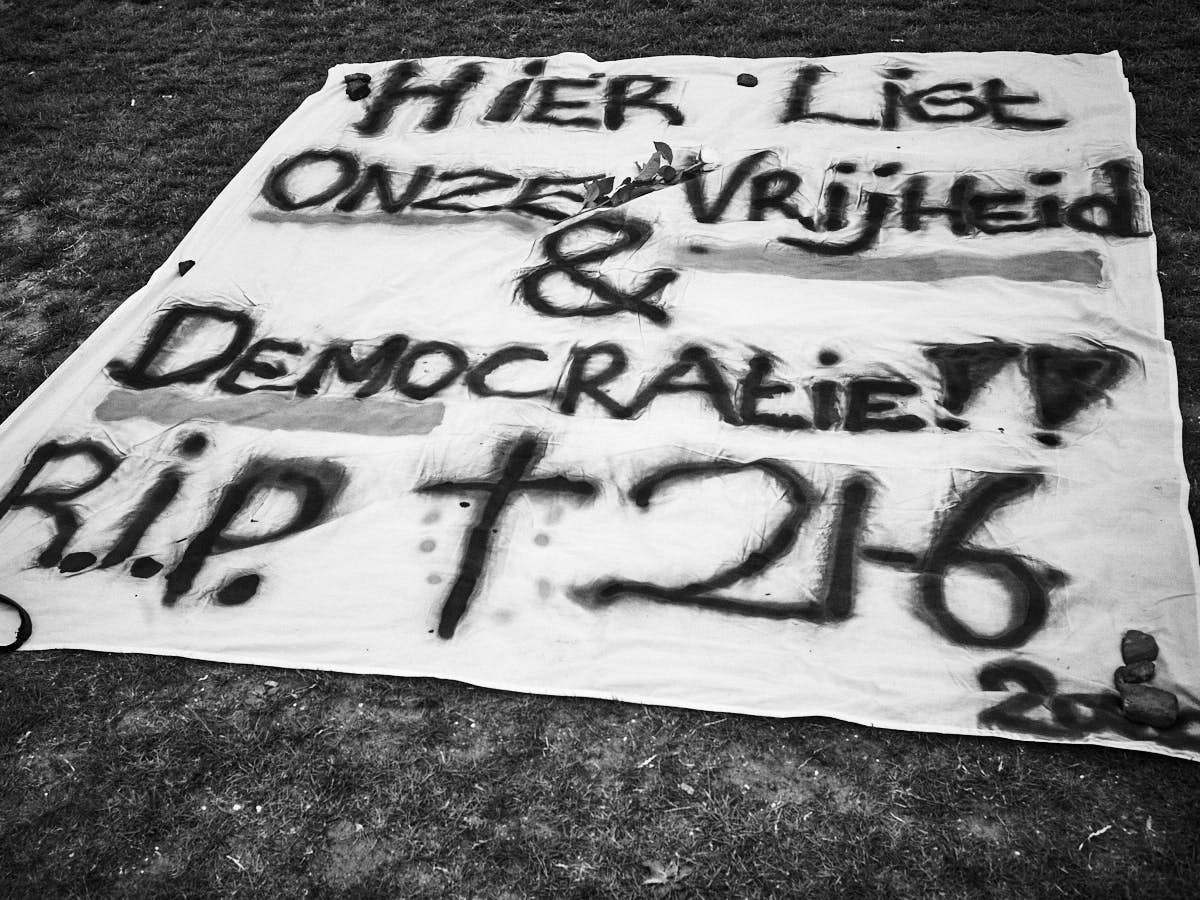 HiER LigT
ONZE VRijHEid
&
DEMOCRATiE!!
R.i.P. † 21-6